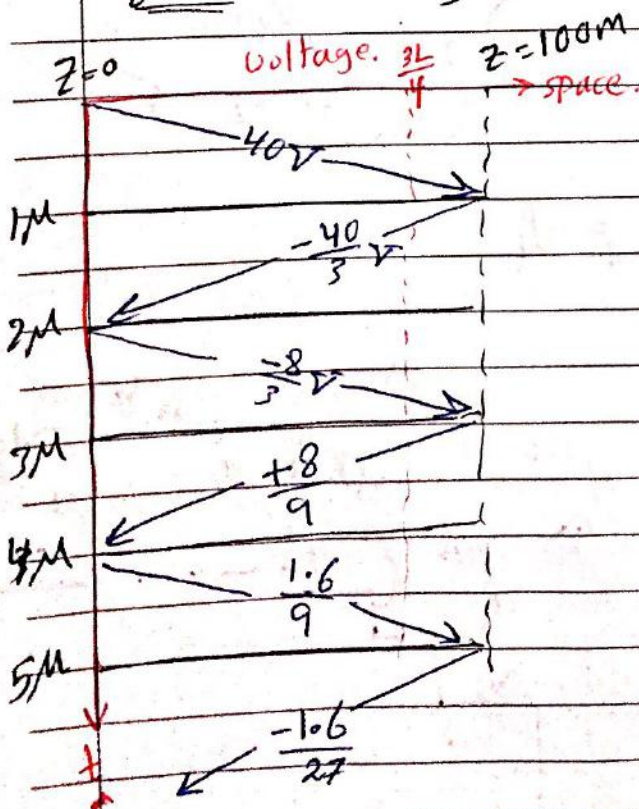 z=0 voltage. 3L/4 z=100m
→ space.
40V
1M
-40/3 V
2M
-8/3 V
3M
+8/9
4M
1.6/9
5M
-1.6/27
t